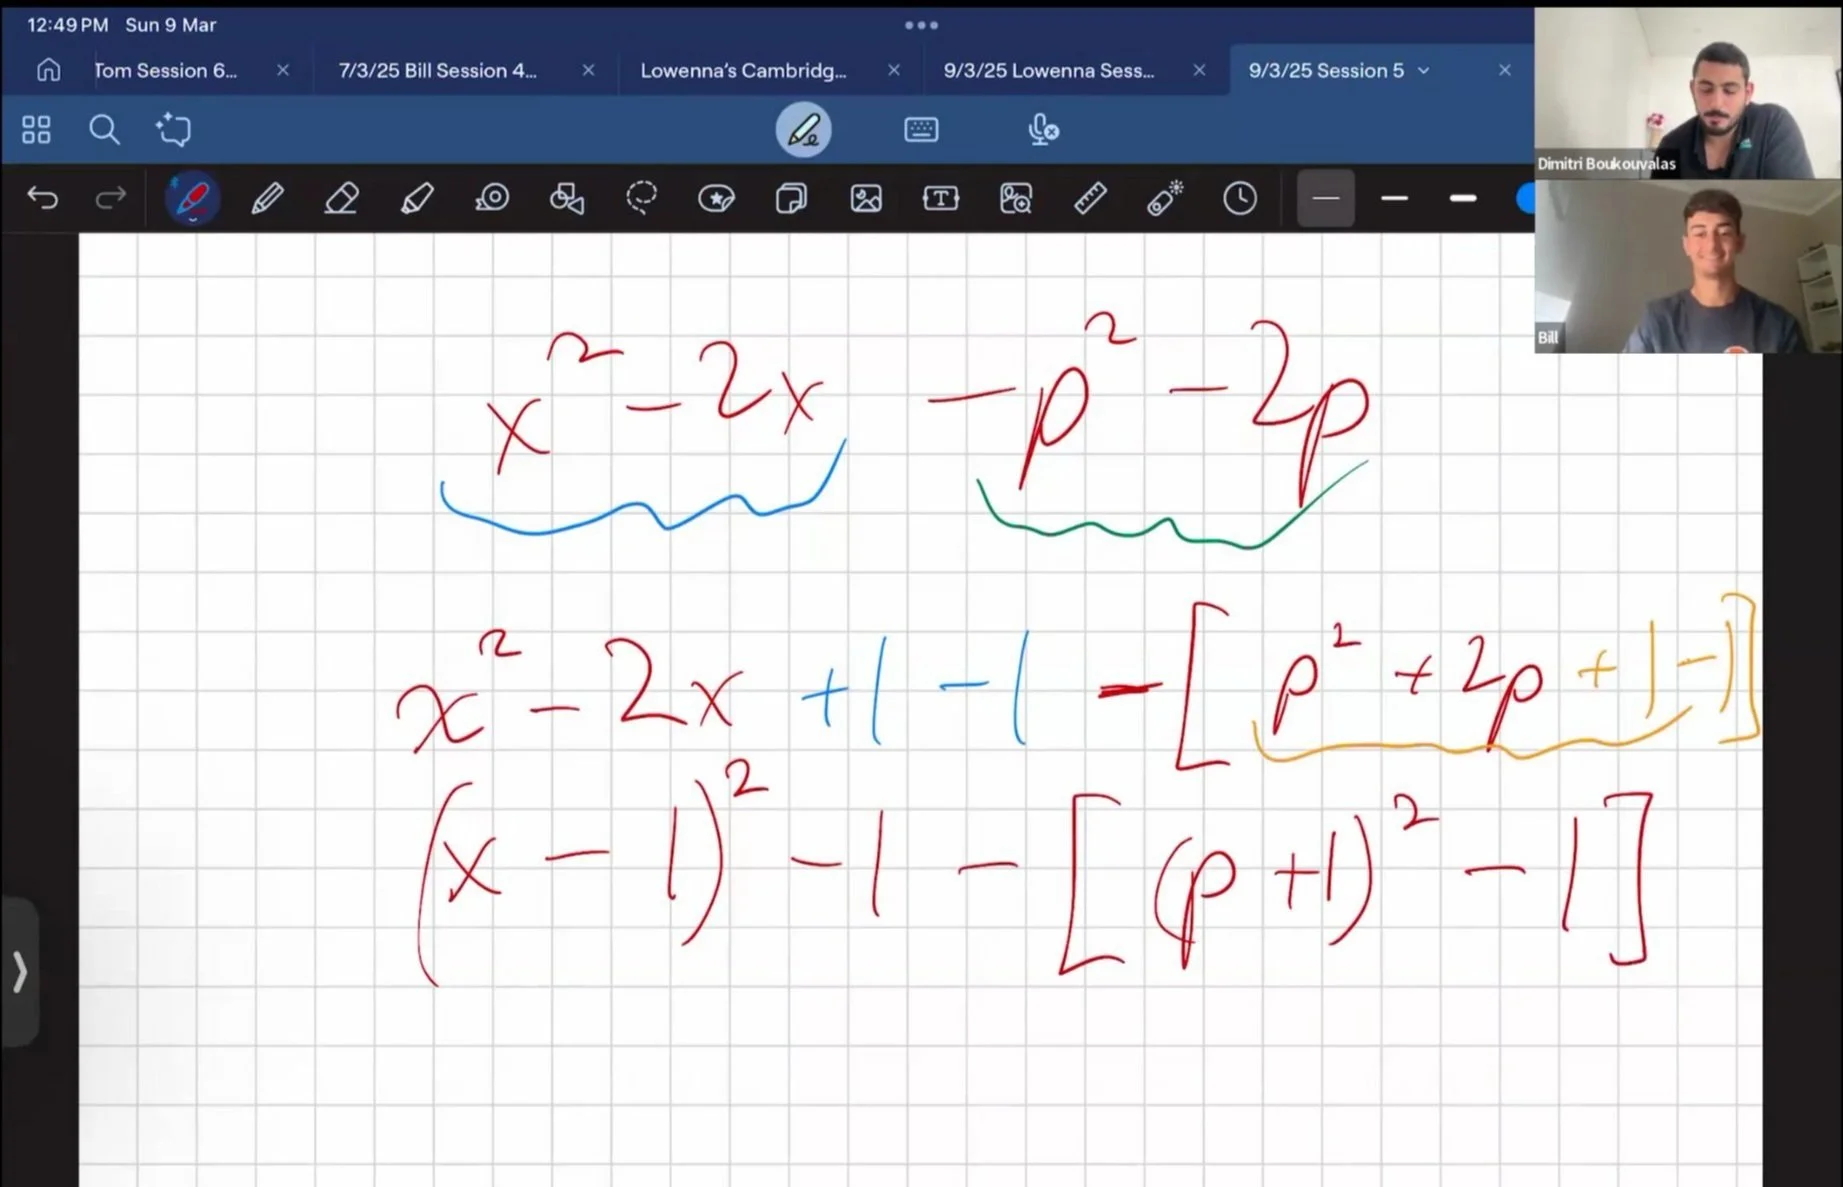 12:49 PM Sun 9 Mar
Tom Session 6... 7/3/25 Bill Session 4... Lowenna's Cambridg... 9/3/25 Lowenna Sess... 9/3/25 Session 5
Dimitri Boukouvalas
Bill
x² - 2x - p² - 2p
x² - 2x + 1 - 1 - [p² + 2p + 1 - 1]
(x - 1)² - 1 - [(p + 1)² - 1]